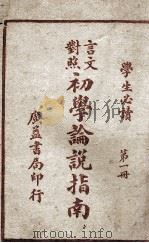 學生必讀 第一冊
言文對照
初學論說指南
廣益書局印行